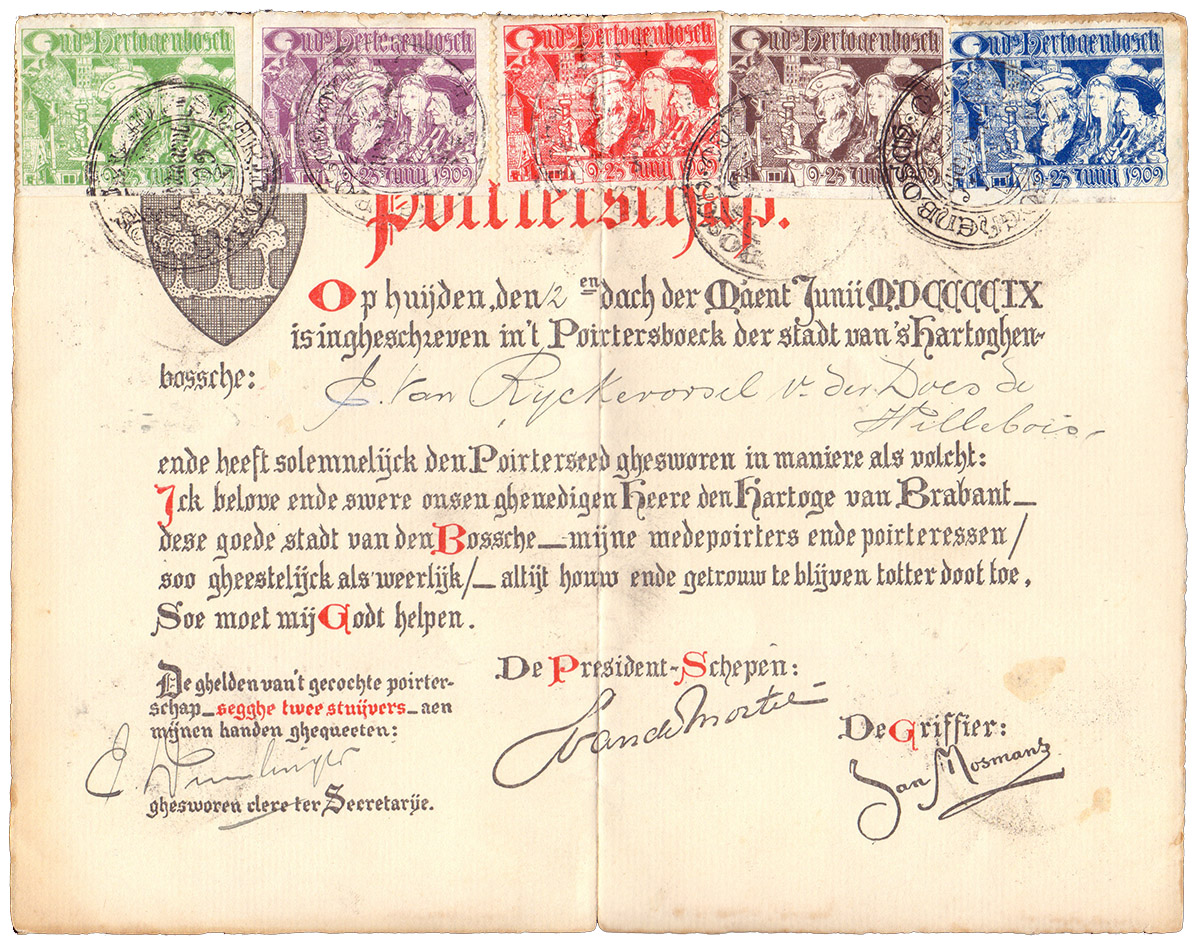 Oud's Hertogenbosch Oud's Hertogenbosch Oud's Hertogenbosch Oud's Hertogenbosch Oud's Hertogenbosch
9-23 Junij 1909 9-23 Junij 1909 9-23 Junij 1909 9-23 Junij 1909
Poirterschap.
Op huijden, den 12 en dach der Maent Junii MDCCCCCIX
is ingheschreven in't Poirtersboeck der stadt van 's Hartoghen-
bossche:
E. van Ryckevorsel v. der Does de
Willebois
ende heeft solemnelijck den Poirterseed ghesworen in maniere als volcht:
Ick belove ende swere onsen ghenedigen Heere den Hartoge van Brabant_
dese goede stadt van den Bossche_mijne medepoirters ende poirteressen/
soo gheestelijck als weerlijk/_altijt houw ende getrouw te blijven totter doot toe.
Soe moet mij Godt helpen.
De ghelden van't gecochte poirter-
schap_segghe twee stuijvers_aen
mijnen handen ghequeeten:
ghesworen clerc ter Secretarije.
De President-Schepen:
van de Mortel
De Griffier:
Jan Mosmans